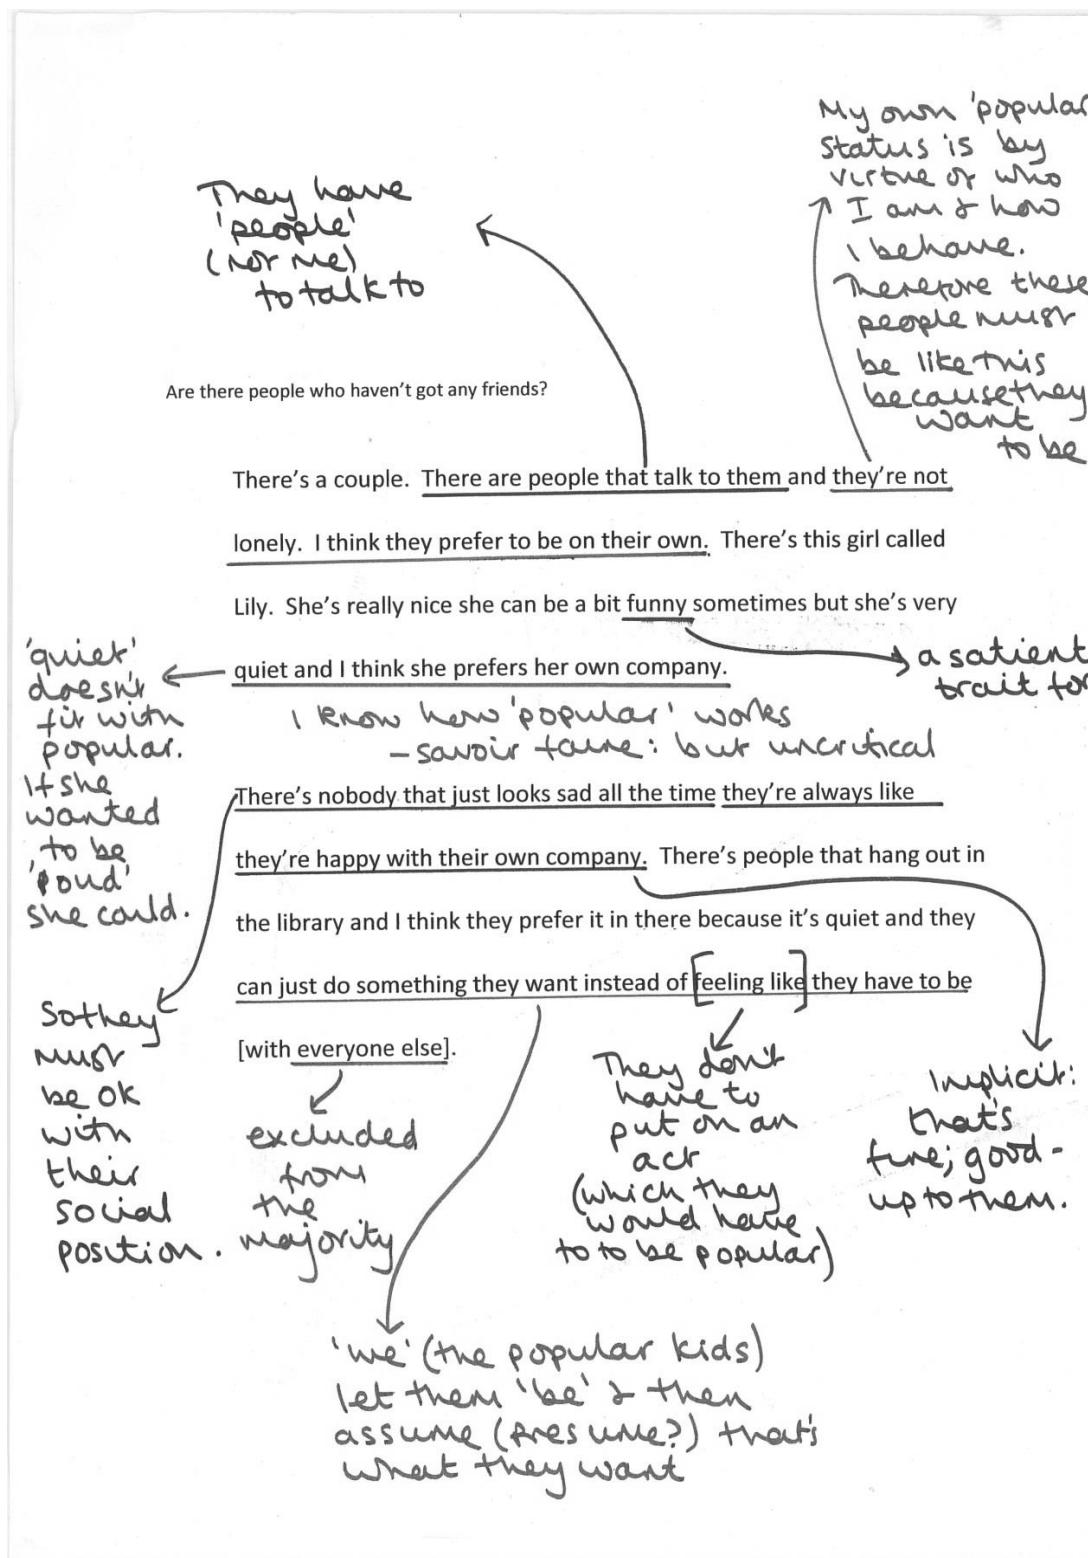 My own 'popular
status is by
virtue of who
I am & how
I behave.
Therefore these
people must
be like this
because they
want
to be
They have
'people'
(not me)
to talk to
Are there people who haven't got any friends?
There's a couple. There are people that talk to them and they're not
lonely. I think they prefer to be on their own. There's this girl called
Lily. She's really nice she can be a bit funny sometimes but she's very
quiet and I think she prefers her own company.
a salient
trait for
'quiet'
doesn't
fit with
popular.
If she
wanted
to be
she could.
I know how 'popular' works
– savoir faire: but uncritical
There's nobody that just looks sad all the time they're always like
they're happy with their own company. There's people that hang out in
the library and I think they prefer it in there because it's quiet and they
can just do something they want instead of [feeling like] they have to be
[with everyone else].
So they
must
be ok
with
their
social
position.
excluded
from
the
majority
They don't
have to
put on an
act
(which they
would have
to to be popular)
Implicit:
that's
fine; good -
up to them.
'we' (the popular kids)
let them 'be' & then
assume (presume?) that's
what they want